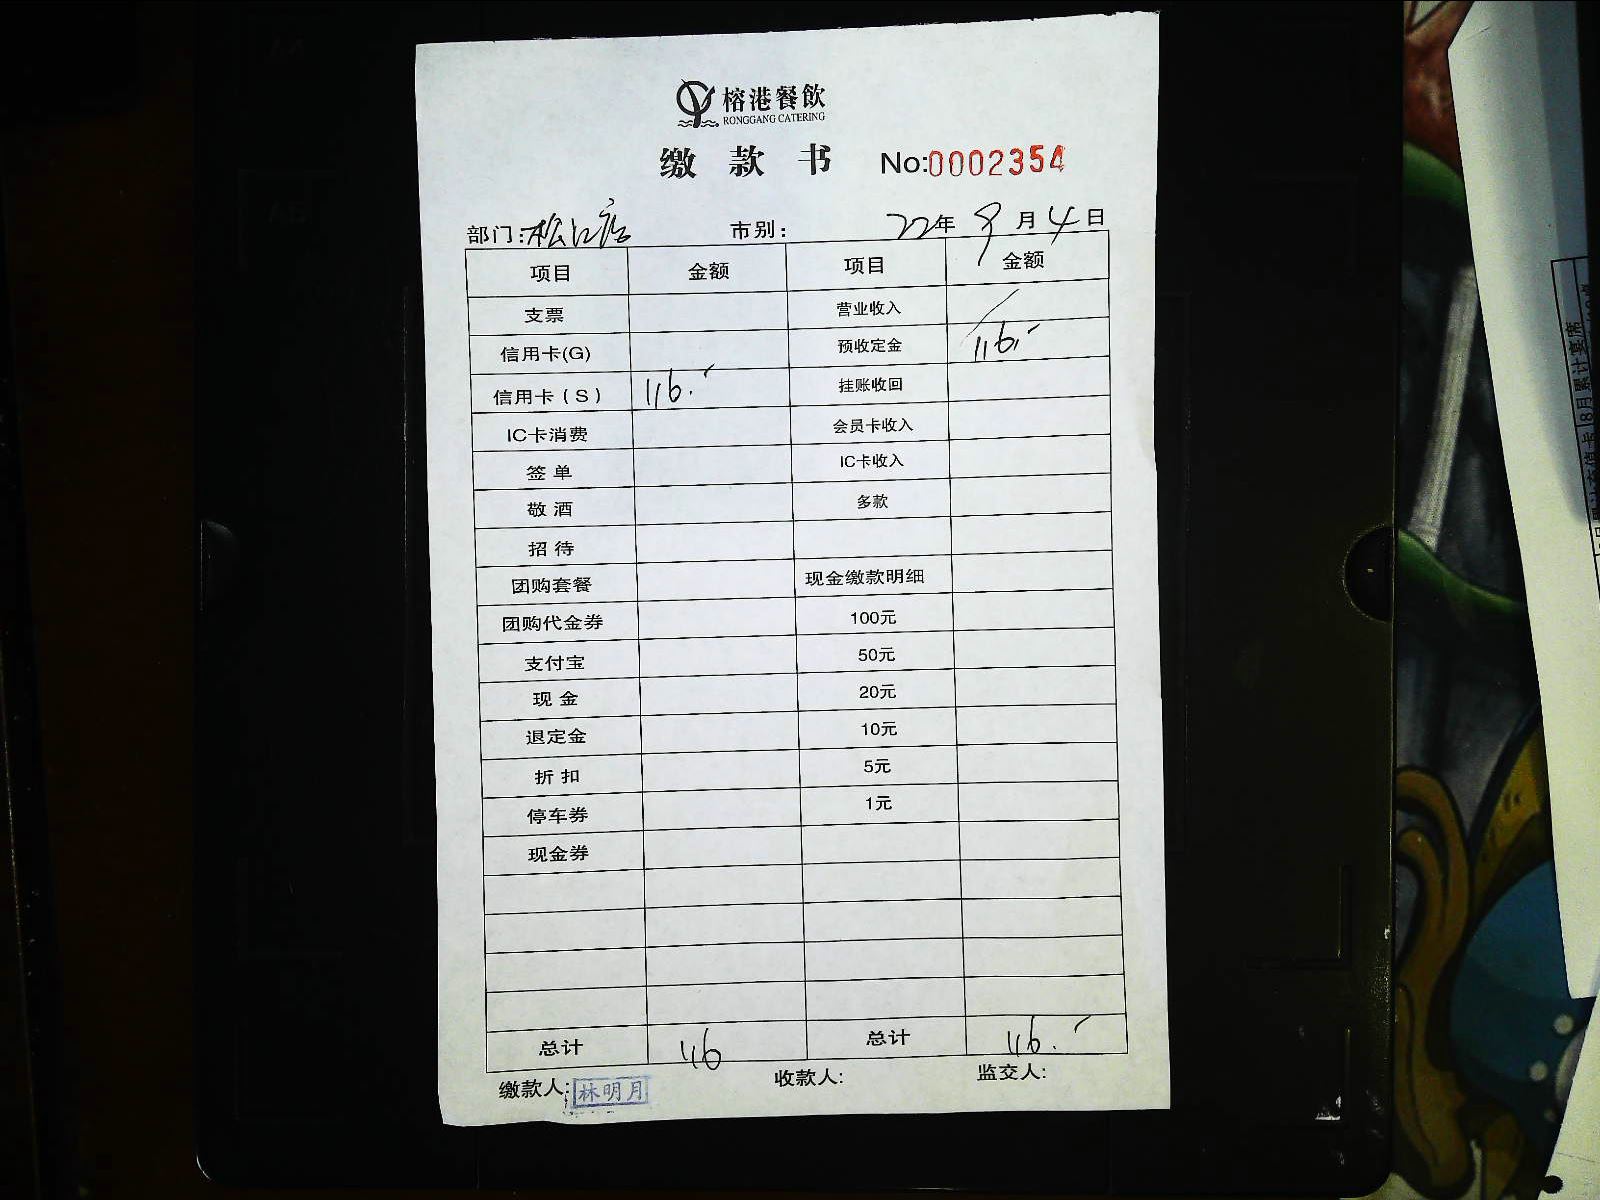 榕港餐飲
RONGGANG CATERING
缴款书 No:0002354
部门:松江店 市别: 22年9月4日
项目 金额 项目 金额
支票 营业收入
信用卡(G) 预收定金 116.-
信用卡(S) 116.- 挂账收回
IC卡消费 会员卡收入
签单 IC卡收入
敬酒 多款
招待
团购套餐 现金缴款明细
团购代金券 100元
支付宝 50元
现金 20元
退定金 10元
折扣 5元
停车券 1元
现金券
总计 116 总计 116.-
缴款人:林明月 收款人: 监交人: